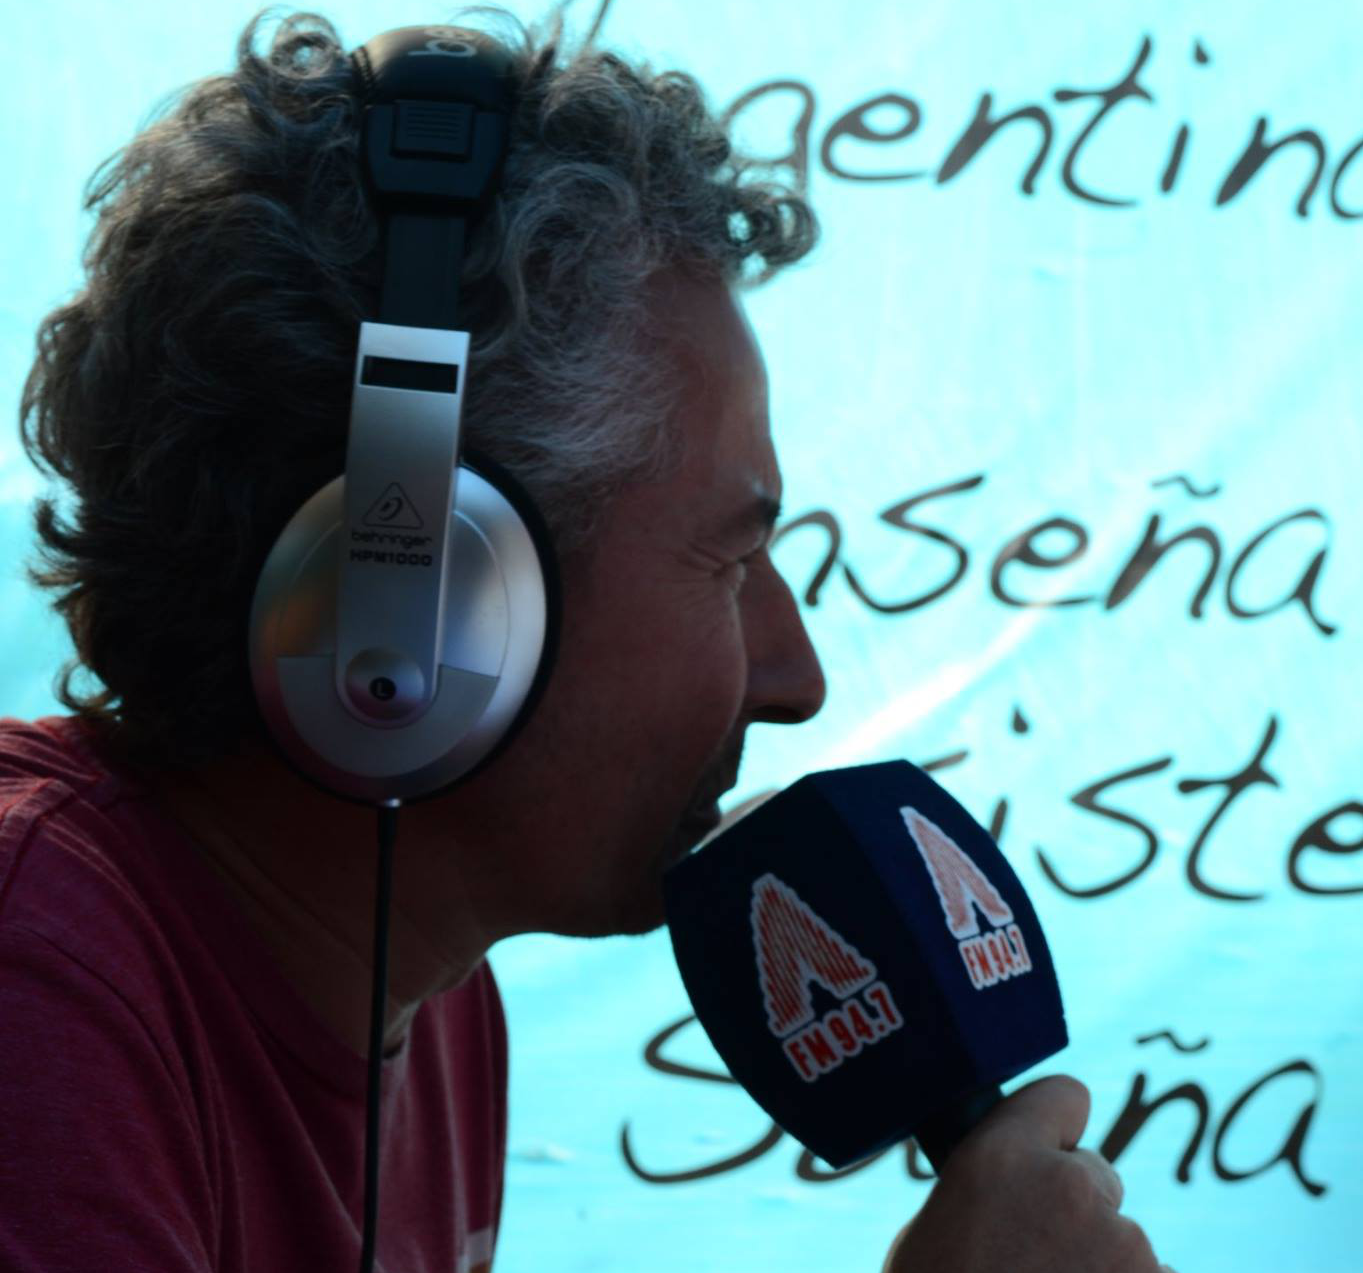 gentina
nseña
iste
behringer
HPM1000
L
FM 94.7
FM 94.7
ña